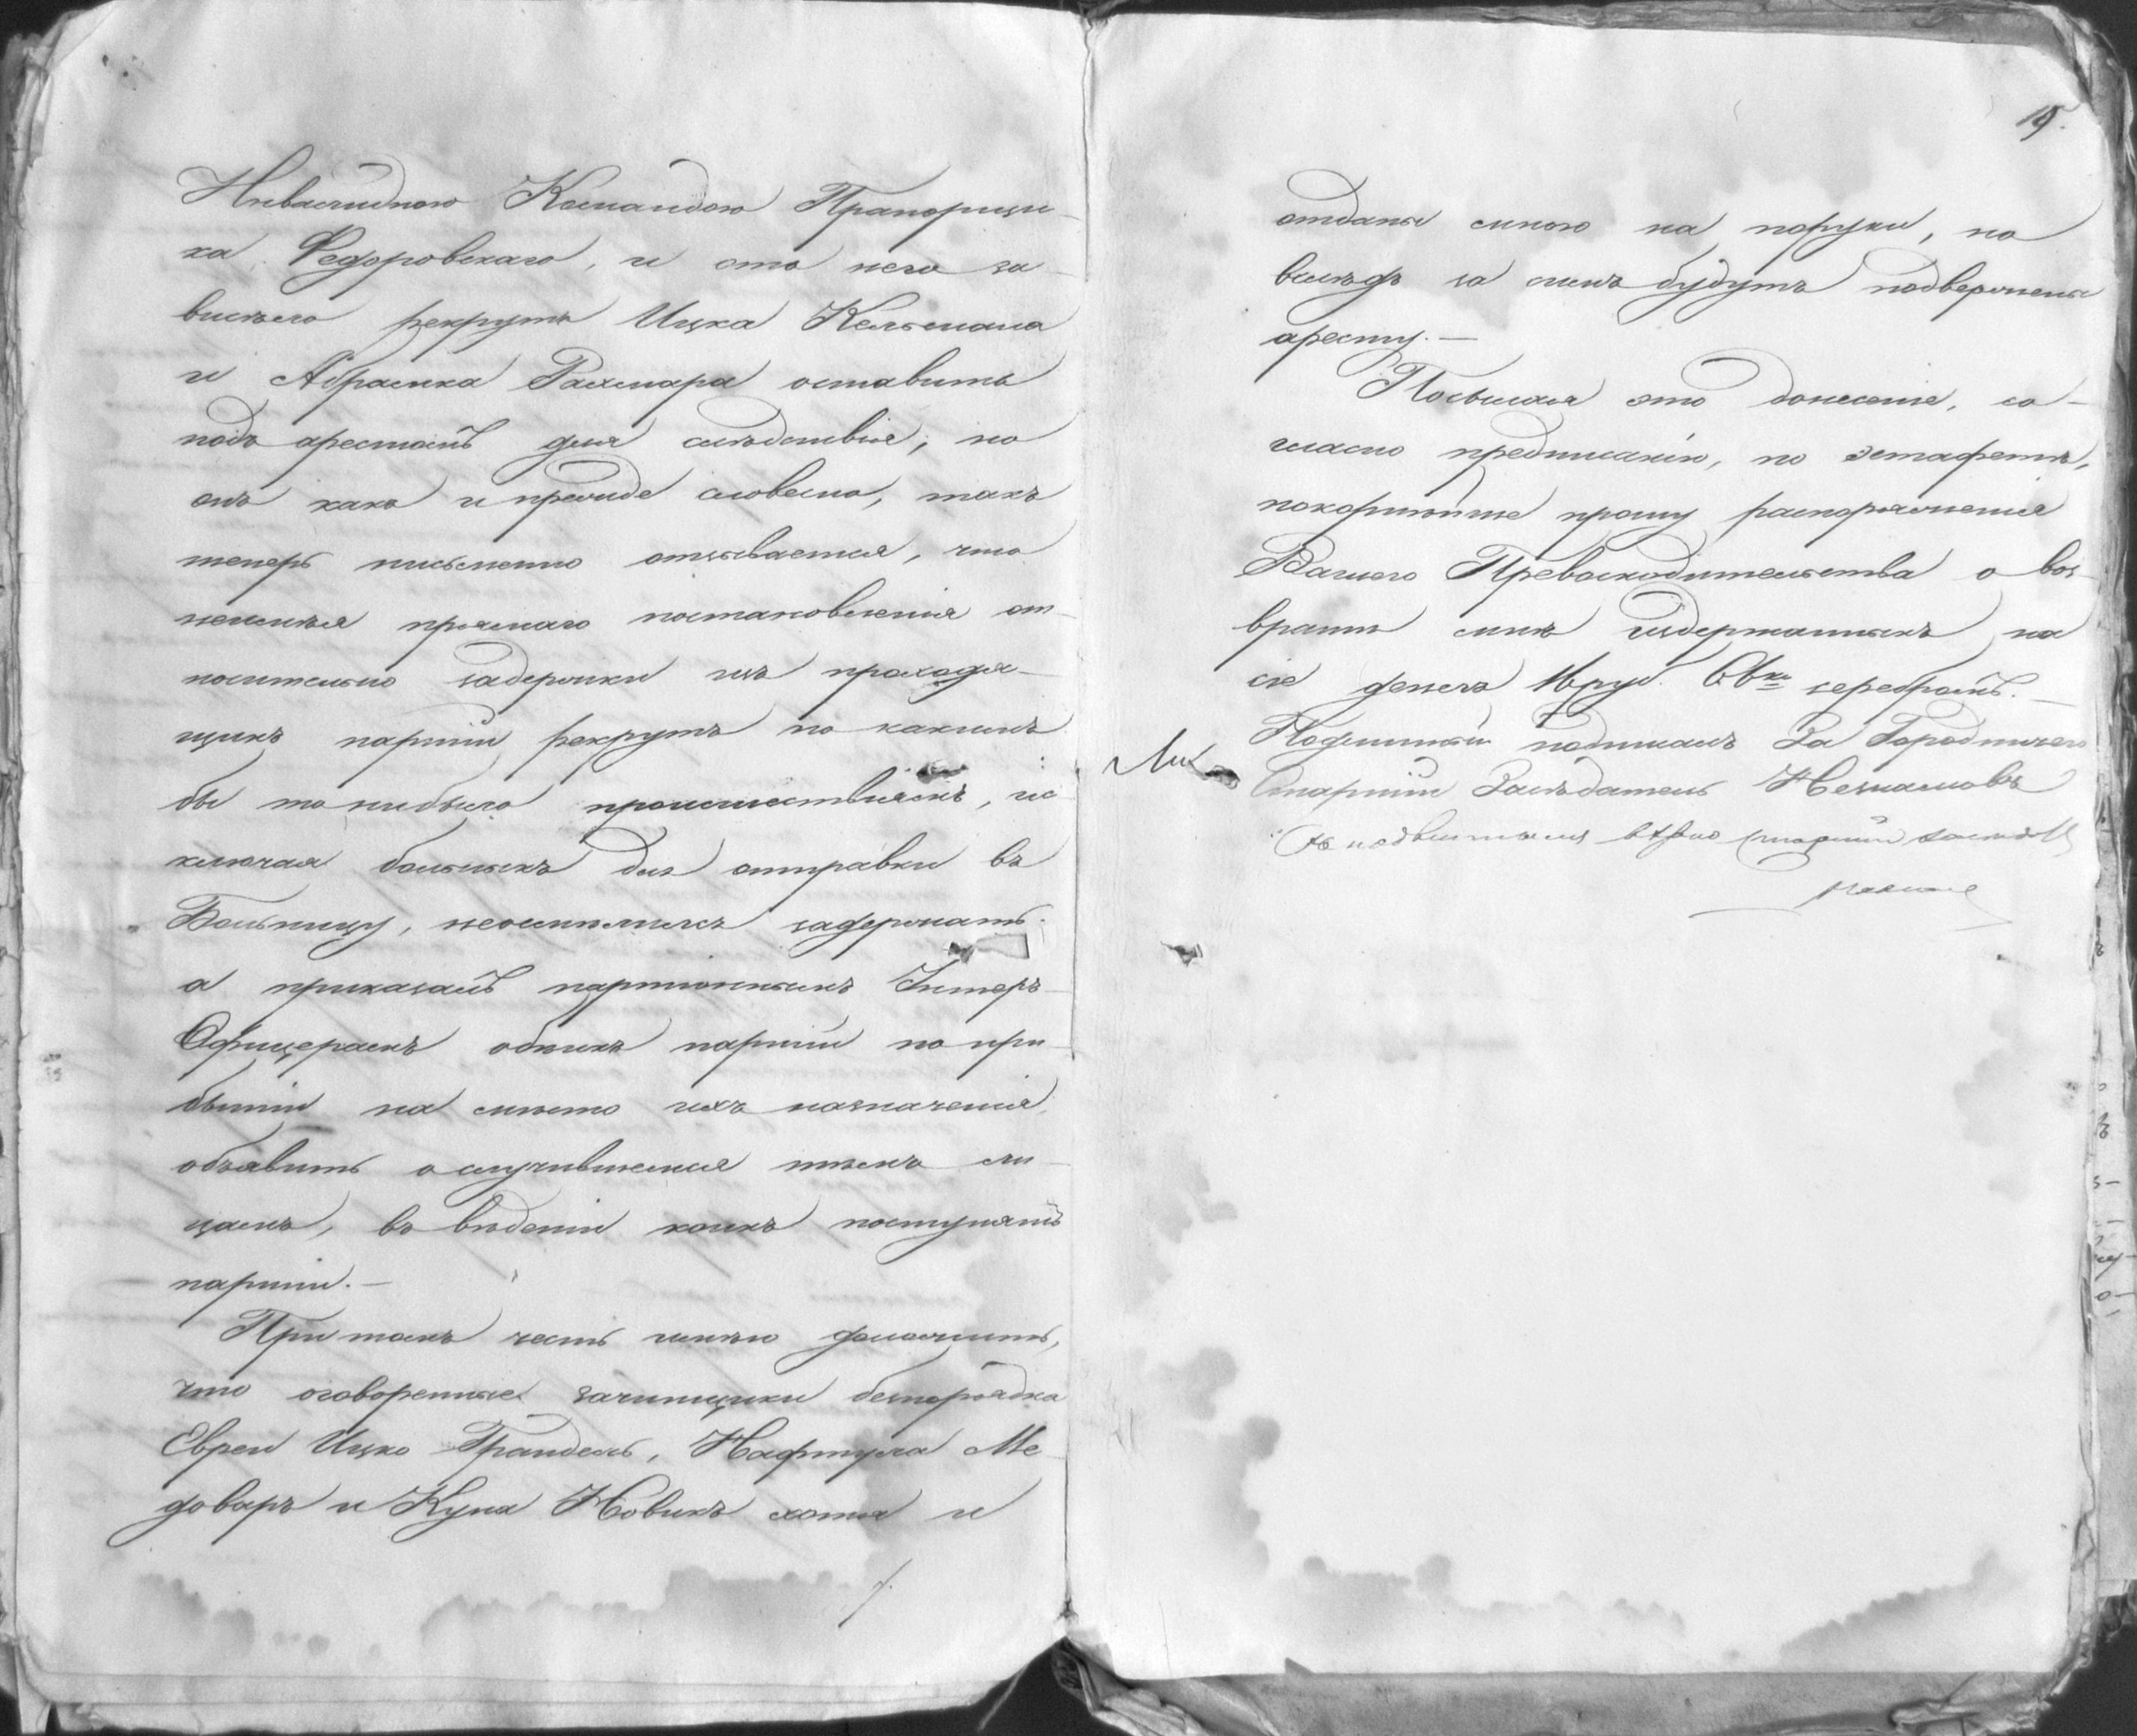 Инвалидною Командою Прапорщи-
ка Федоровскаго, и отъ него за-
висело рекрутъ Ицка Кельмана
и Абрамка оставить
подъ арестомъ для слѣдствія, но
онъ какъ и прежде словесно, такъ
теперь письменно отзывается, что
неимѣя прямаго постановленія от-
носительно задержки изъ проходя-
щихъ партій рекрутъ по какимъ
бы то нибыло происшествіямъ, ис-
ключая больныхъ для отправки въ
Больницу, неосмѣлился задержать.
а приказалъ партіоннымъ Унтеръ-
Офицерамъ обѣихъ партій по при-
бытіи на мѣсто ихъ назначенія,
объявить о случившемся тѣмъ ли-
цамъ, въ вѣденіи коихъ поступятъ
партіи.—
При томъ честь имѣю доложить,
что оговоренные зачинщики безпорядка
Евреи Ицко Грандель, Нафтула Ме-
доваръ и Куна Новикъ хотя и
15.
отданы мною на поруки, но
вслѣдъ за симъ будутъ подвержены
аресту.—
Посылая это донесеніе, со-
гласно предписанію, по эстафетѣ,
покорнѣйше прошу распоряженія
Вашего Превосходительства о воз-
вратѣ мнѣ издержанныхъ на
сіе денегъ руб. коп серебромъ.—
Подлинный подписалъ За Городничаго
Старшій Засѣдатель Незнамовъ
вѣрно